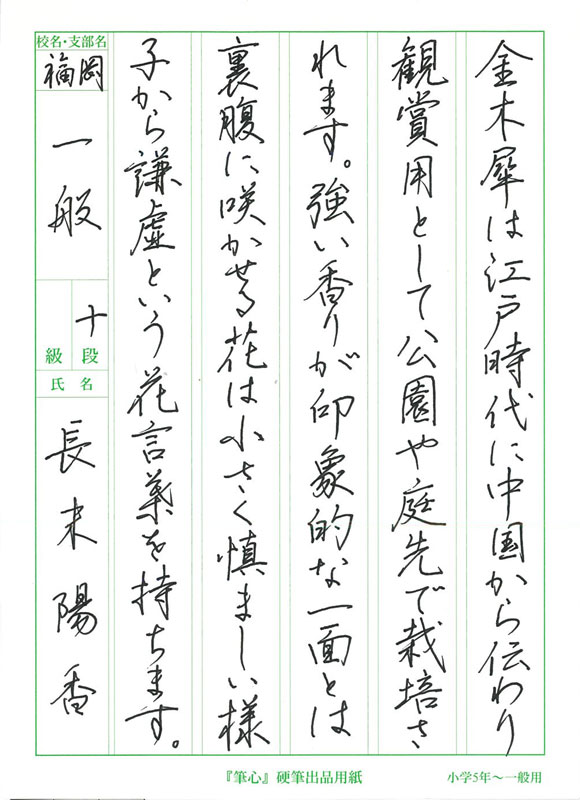 金木犀は江戸時代に中国から伝わり
観賞用として公園や庭先で栽培さ
れます。強い香りが印象的な一面とは
裏腹に咲かせる花は小さく慎ましい様
子から謙虚という花言葉を持ちます。
校名・支部名
福岡
一般
十段
級
氏名
長末陽香
『筆心』硬筆出品用紙
小学5年〜一般用